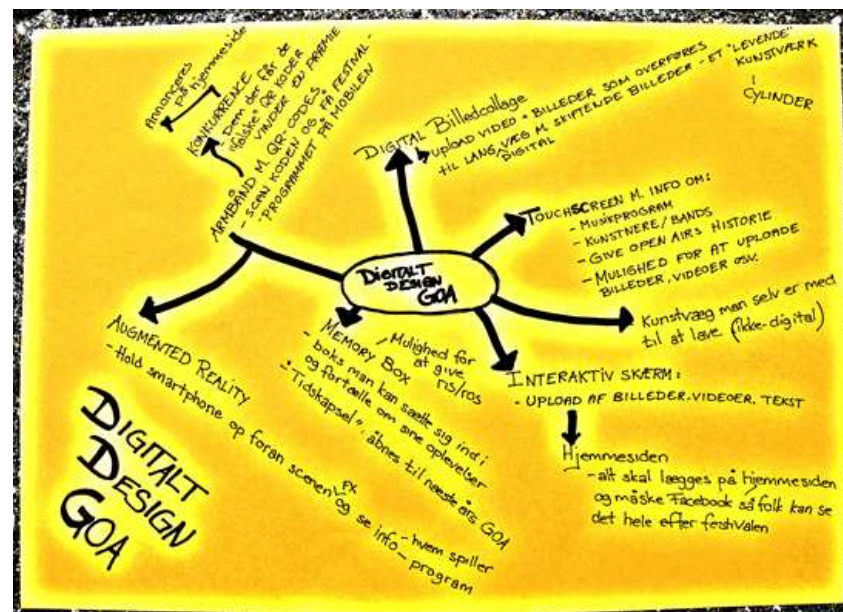 DIGITALT
DESIGN
GOA
Annonceres
på hjemmeside
KONKURRENCE
Dem der får de
"falske" QR KODER
VINDER EN PRÆMIE
ARMBÅND M. QR-CODES.
- SCAN KODEN OG FÅ FESTIVAL-
PROGRAMMET PÅ MOBILEN
DIGITAL Billedcollage
UPLOAD VIDEO + BILLEDER SOM OVERFØRES
TIL LANG VÆG M. SKIFTENDE BILLEDER - ET "LEVENDE"
DIGITAL
KUNSTVÆRK
CYLINDER
TOUCHSCREEN M. INFO OM:
- MUSIKPROGRAM
- KUNSTNERE / BANDS
- GIVE OPEN AIRS HISTORIE
- MULIGHED FOR AT UPLOADE
BILLEDER, VIDEOER OSV.
Kunstvæg man selv er med
til at lave (ikke-digital)
INTERAKTIV SKÆRM:
- UPLOAD AF BILLEDER, VIDEOER, TEKST
Hjemmesiden
- alt skal lægges på hjemmesiden
og måske Facebook så folk kan se
det hele efter festivalen
MEMORY BOX
Mulighed for
at give
ris/ros
- boks man kan sætte sig ind i
og fortælle om sine oplevelser
- "Tidskapsel", åbnes til næste års GOA
AUGMENTED REALITY
- Hold smartphone op foran scenen
FX
og se info - hvem spiller
- program
DIGITALT
DESIGN
GOA